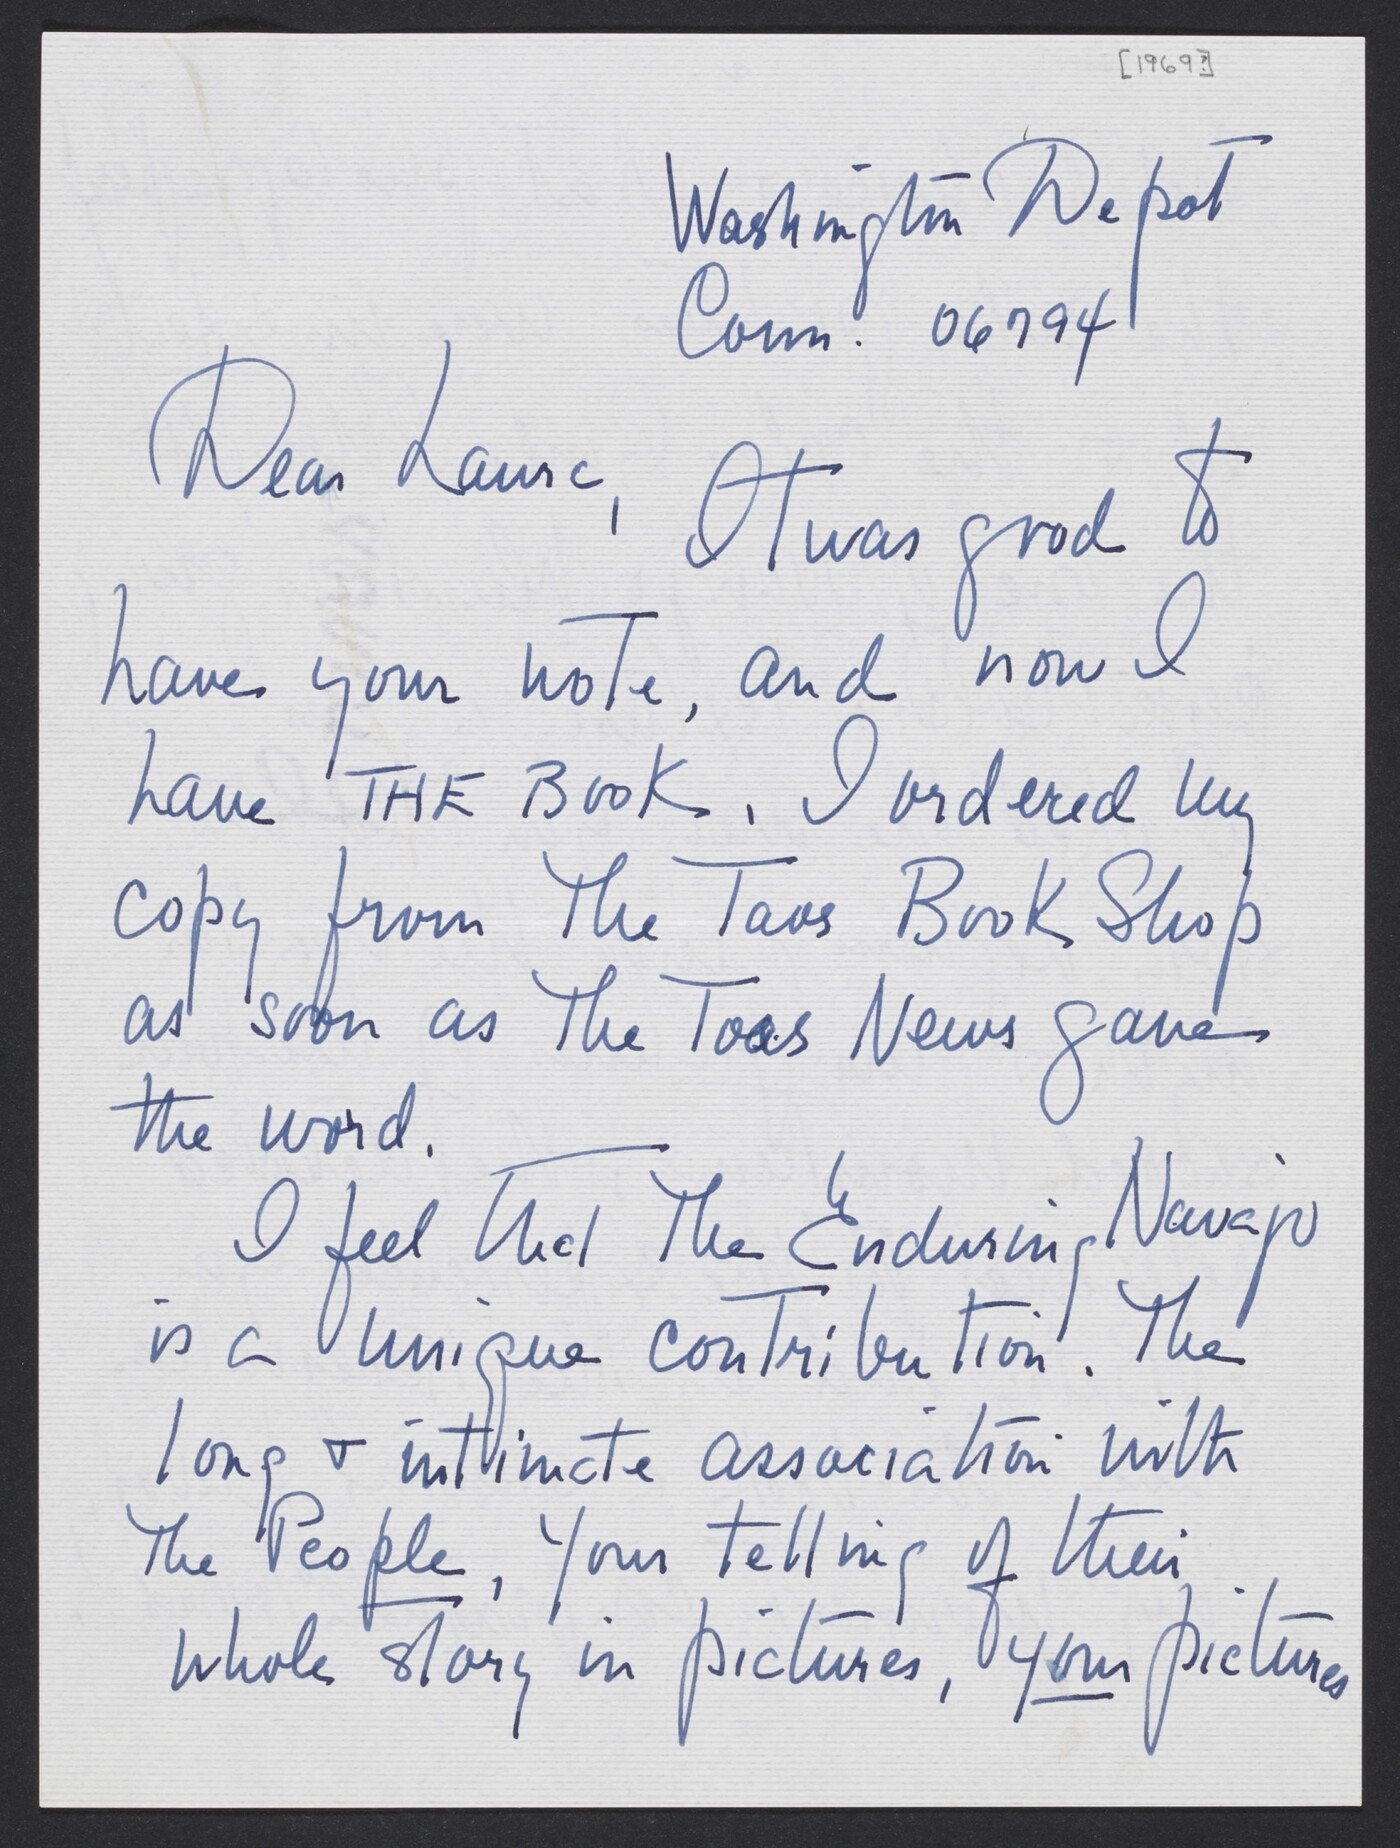 [1969?]
Washington Depot
Conn. 06794
Dear Laura,
It was good to
have your note, and now I
have THE BOOK. I ordered my
copy from The Taos Book Shop
as soon as The Taos News gave
the word.
I feel that The Enduring Navajo
is a unique contribution. The
long & intimate association with
The People, your telling of their
whole story in pictures, your pictures